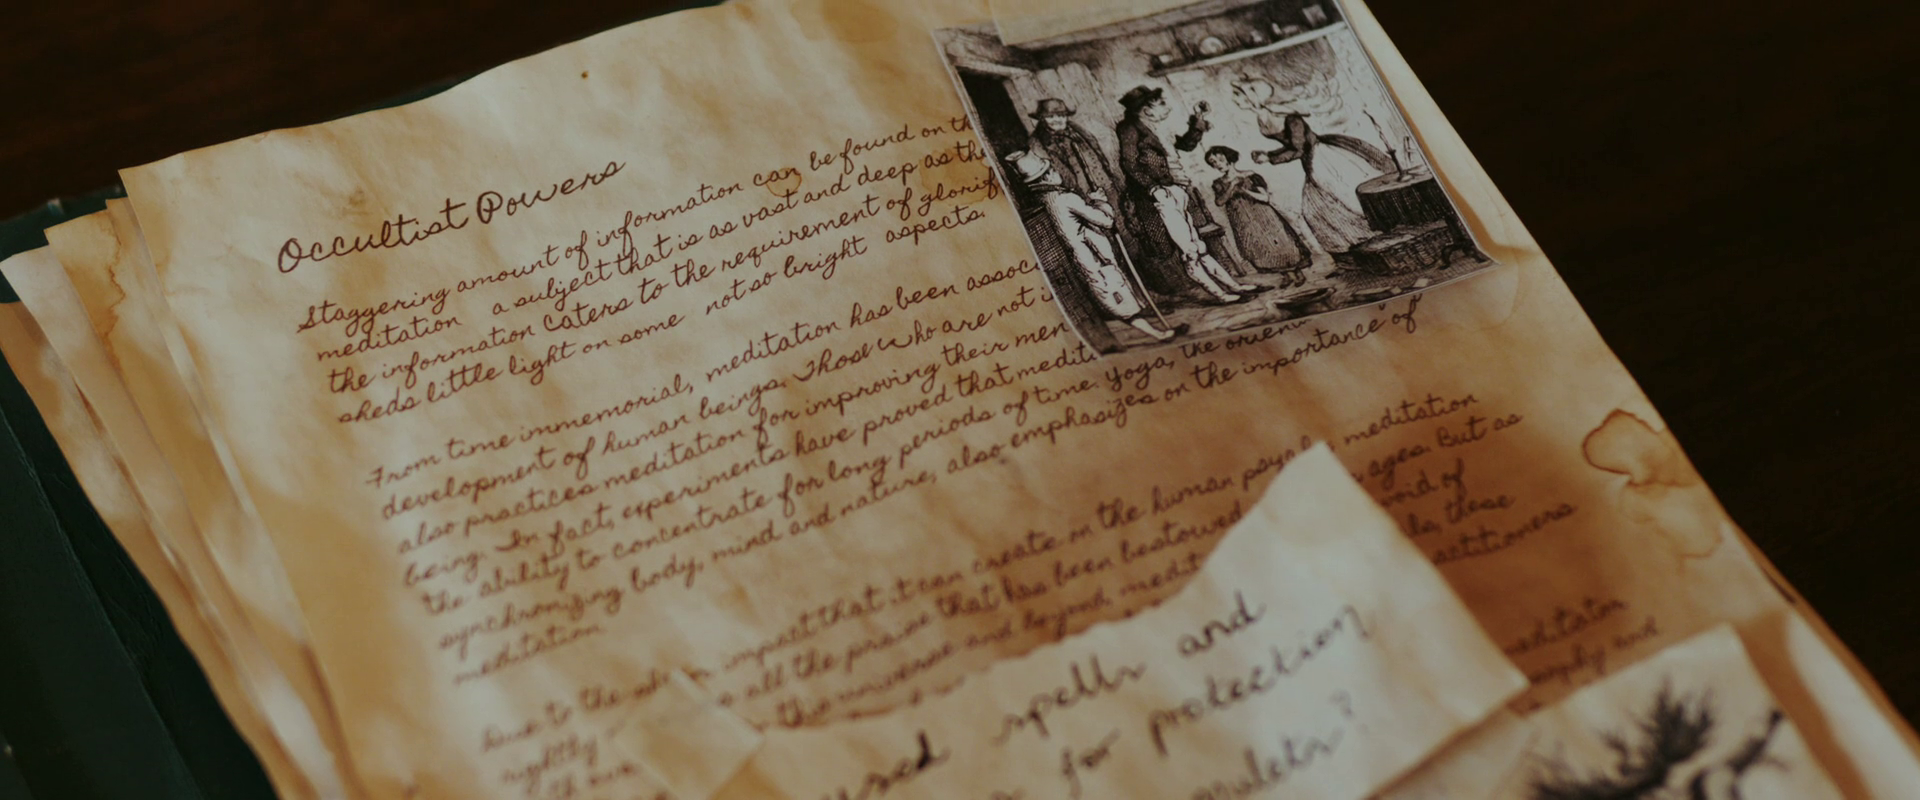 Occultist Powers
Staggering amount of information can be found on th
meditation a subject that is as vast and deep as the
the information caters to the requirement of glorif
sheds little light on some not so bright aspects.
From time immemorial, meditation has been associ
development of human beings. Those who are not i
also practices meditation for improving their men
being. In fact, experiments have proved that medit
the ability to concentrate for long periods of time. Yoga, the orien
synchronizing body, mind and nature, also emphasizes on the importance of
meditation.
Due to the impact that it can create on the human meditation
all the praise that has been bestowed ages. But as
this universe and beyond, medit void of
these
actitioners
meditator
and
used spells and
for protection
amulets?